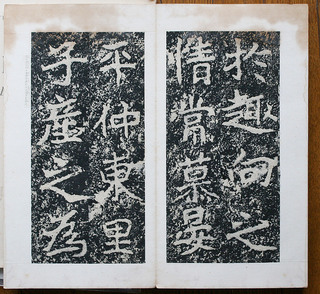 於趣向之
情常慕晏
平仲東里
子產之為